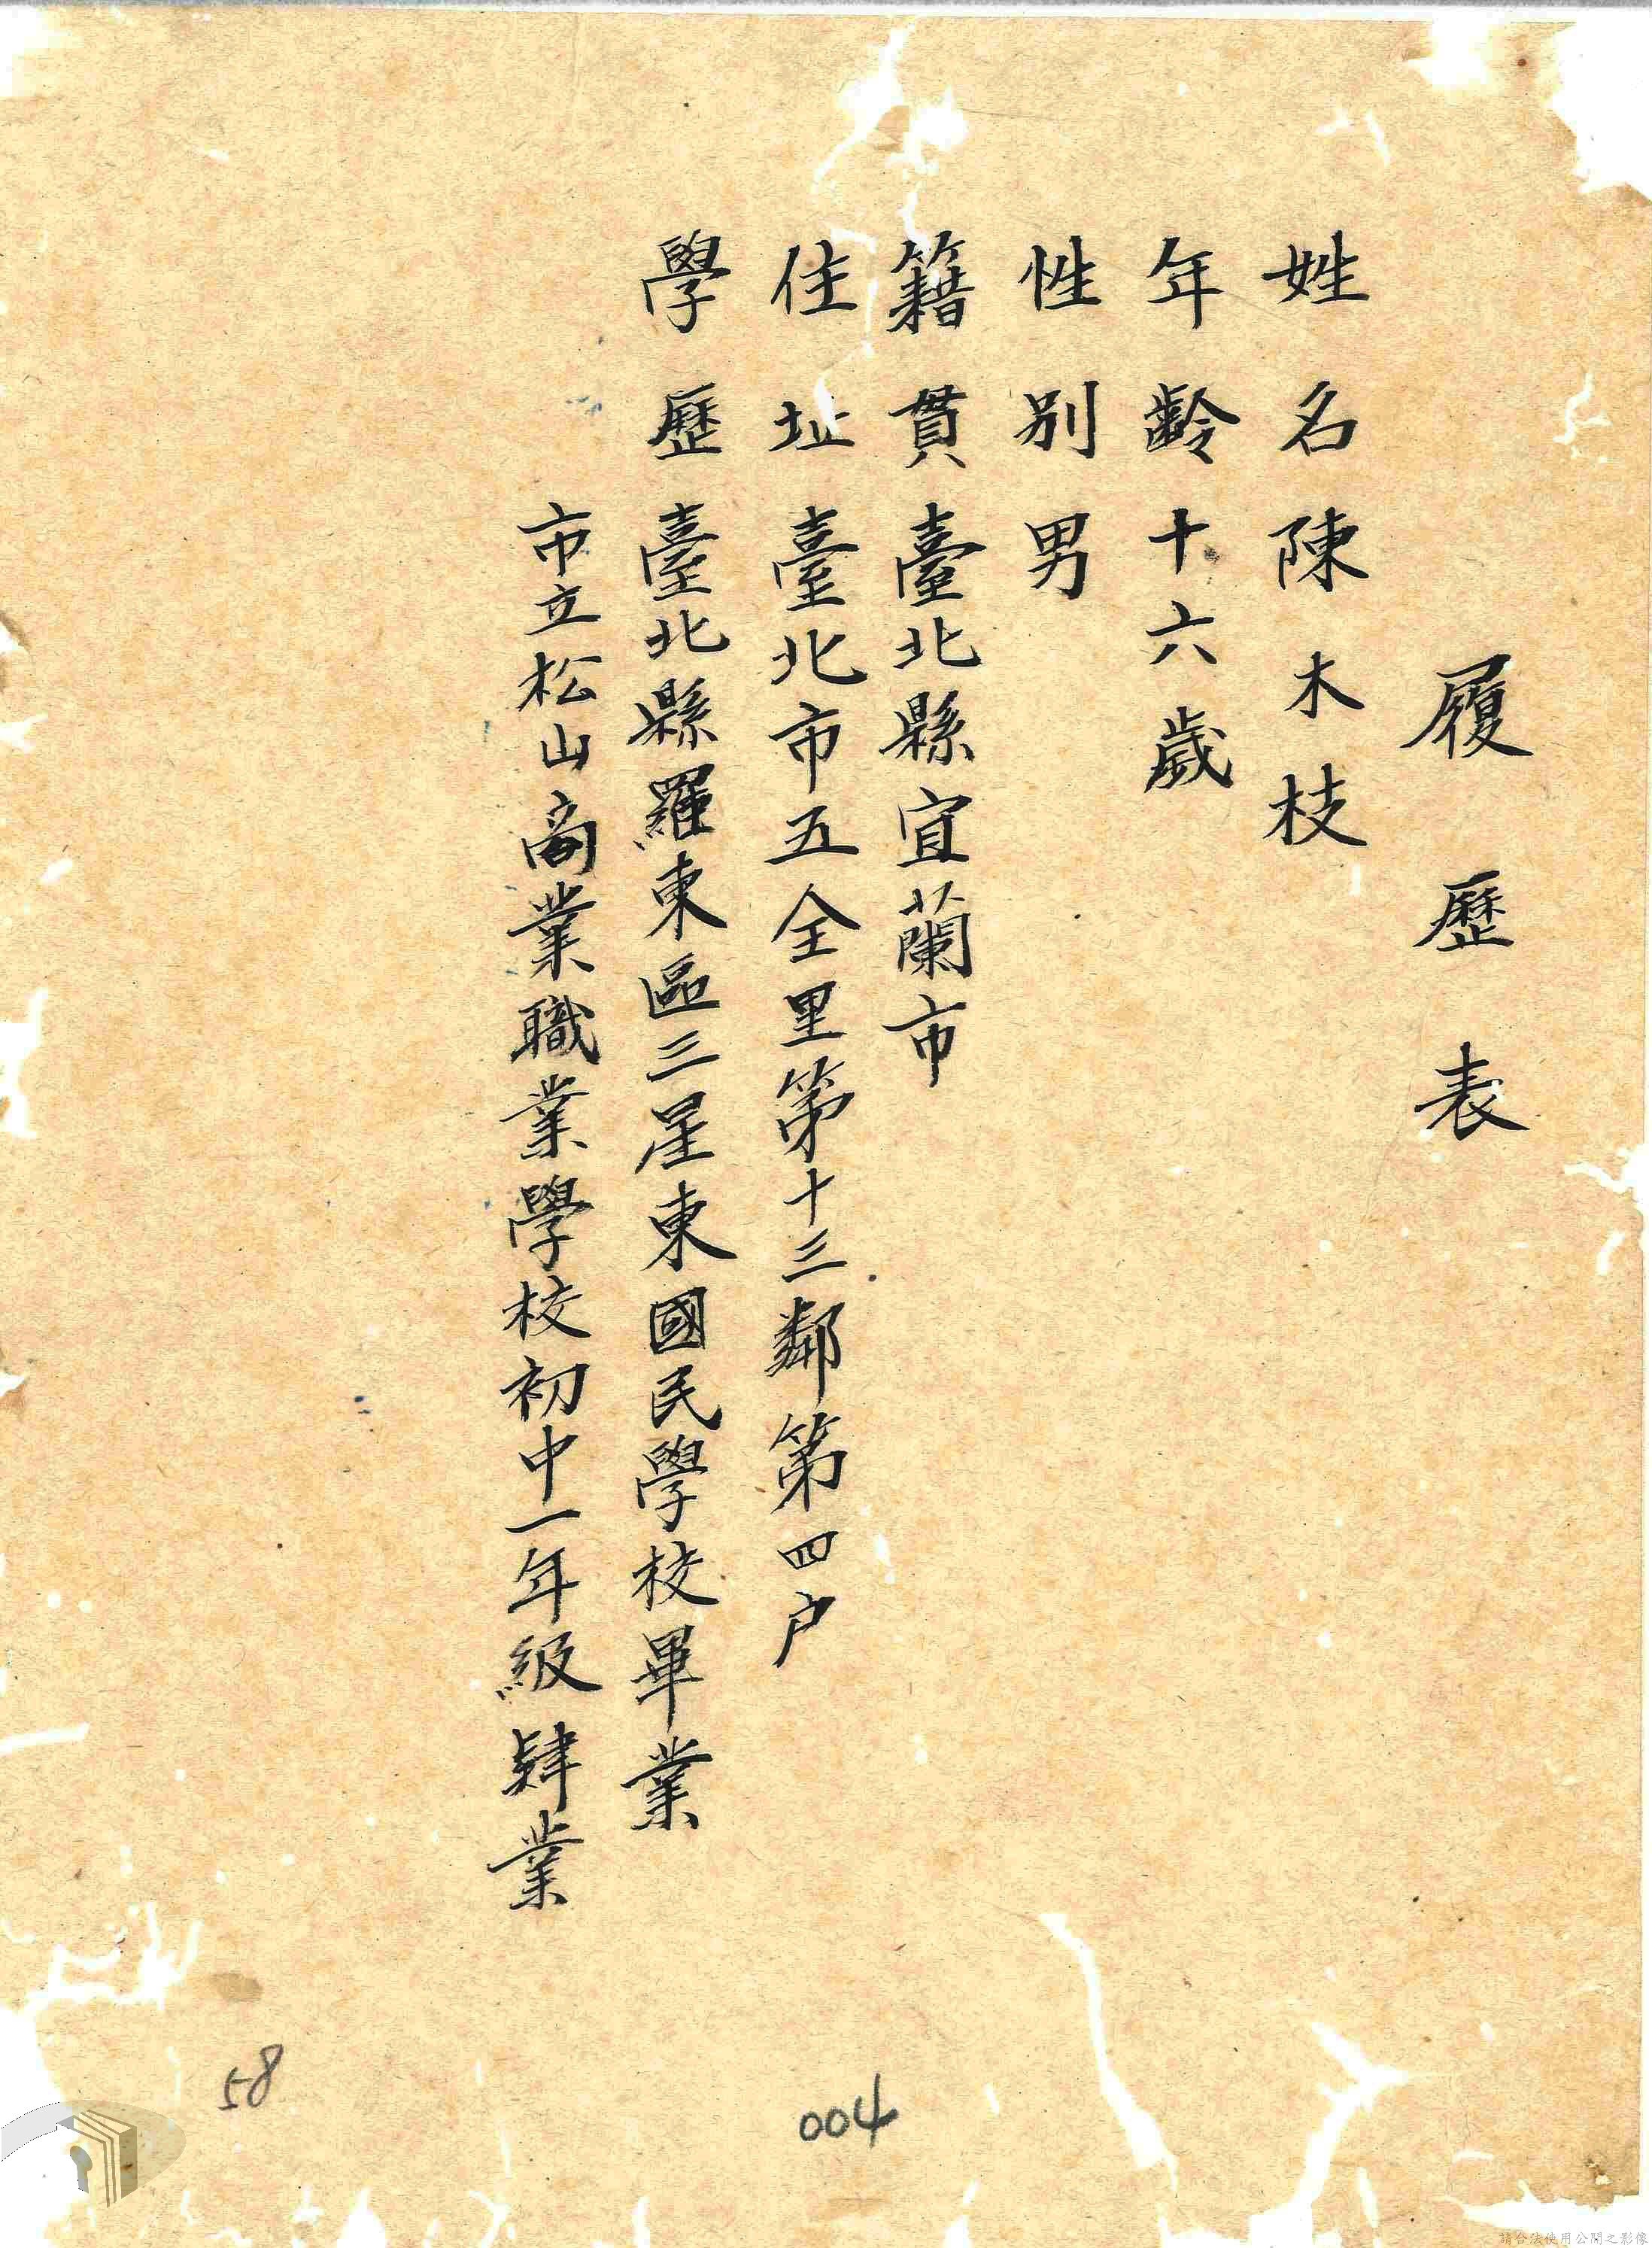 履歷表
姓名陳木枝
年齡十六歲
性別男
籍貫臺北縣宜蘭市
住址臺北市五全里第十三鄰第四户
學歷臺北縣羅東區三星東國民學校畢業
市立松山商業職業學校初中一年級肄業
58
004
請合法使用公開之影像